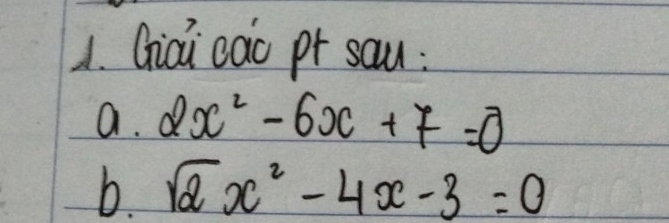 1. Giải các pt sau:
a. 2x² - 6x + 7 = 0
b. √2 x² - 4x - 3 = 0